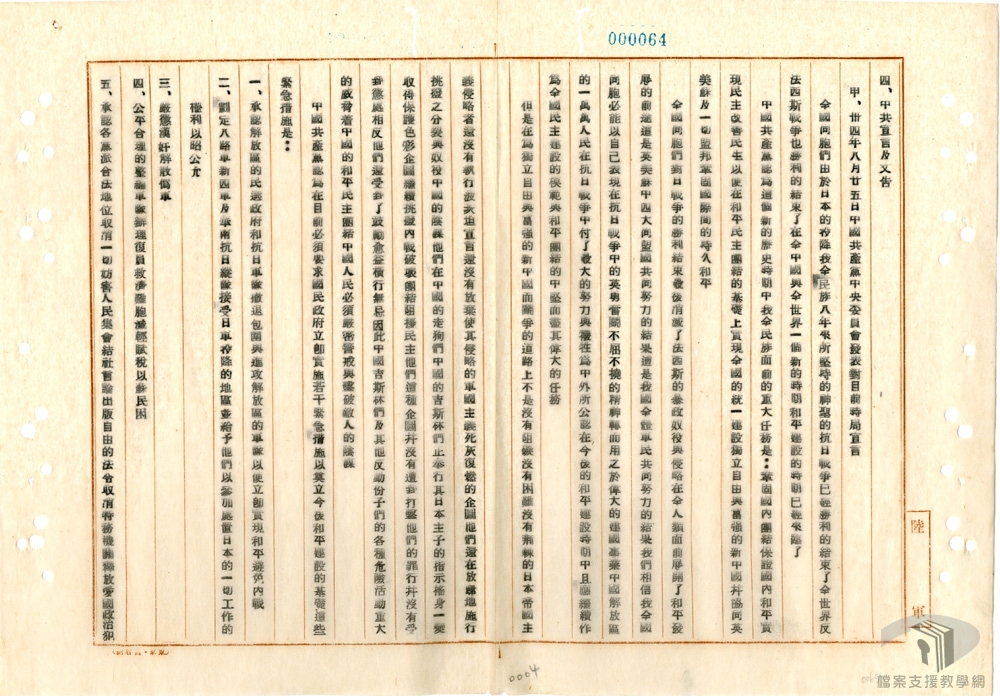 000064
四、中共宣言及文告
甲、卅四年八月廿五日中國共產黨中央委員會發表對目前時局宣言
全國同胞們由於日本的投降我全民族八年來所堅持的神聖的抗日戰爭已經勝利的結束了全世界反
法西斯戰爭也勝利的結束了在全中國與全世界一個新的時期和平建設的時期已經來臨了
中國共產黨認為這個新的歷史時期中我全民族面前的重大任務是：鞏固國內團結保證國內和平實
現民主改善民生以便在和平民主團結的基礎上實現全國的統一建設獨立自由與富強的新中國并協同英
美蘇及一切盟邦鞏固國際間的持久和平
全國同胞們對日戰爭的勝利結束最後消滅了法西斯的暴政奴役與侵略在全人類面前展開了和平發
展的前途這是英美蘇中四大同盟國共同努力的結果這是我國全體軍民共同努力的結果我們相信我全國
同胞必能以自己表現在抗日戰爭中的英勇奮鬥不屈不撓的精神轉而用之於偉大的建國事業中國解放區
的一萬萬人民在抗日戰爭中付了最大的努力與犧牲為中外所公認在今後的和平建設時期中且繼續作
為全國民主建設的模範與和平團結的中堅而盡其偉大的任務
但是在為獨立自由與富強的新中國而鬥爭的道路上不是沒有阻礙沒有困難沒有荊棘的日本帝國主
義侵略者還沒有執行波茨坦宣言還沒有放棄使其侵略的軍國主義死灰復燃的企圖他們還在放肆地施行
挑撥之分裂與奴役中國的陰謀他們在中國的走狗們中國的吉斯林們正奉行其日本主子的指示搖身一變
取得保護色彩企圖繼續挑撥內戰破壞團結阻撓民主他們這種企圖并沒有遭到打擊他們的罪行并沒有受
到懲處相反他們還受到了鼓勵愈益橫行無忌因此中國吉斯林們及其他反動份子們的各種危險活動重大
的威脅着中國的和平民主團結中國人民必須嚴密警戒與擊破敵人的陰謀
中國共產黨認為在目前必須要求國民政府立即實施若干緊急措施以奠立今後和平建設的基礎這些
緊急措施是：
一、承認解放區的民選政府和抗日軍隊撤退包圍與進攻解放區的軍隊以便立即實現和平避免內戰
二、劃定八路軍新四軍及華南抗日縱隊接受日軍投降的地區並給予他們以參加處置日本的一切工作的
權利以昭公允
三、嚴懲漢奸解散偽軍
四、公平合理的整編軍隊辦理復員救濟難胞減輕賦稅以蘇民困
五、承認各黨派合法地位取消一切妨害人民集會結社言論出版自由的法令取消特務機關釋放愛國政治犯
陸
軍
0004
檔案支援教學網